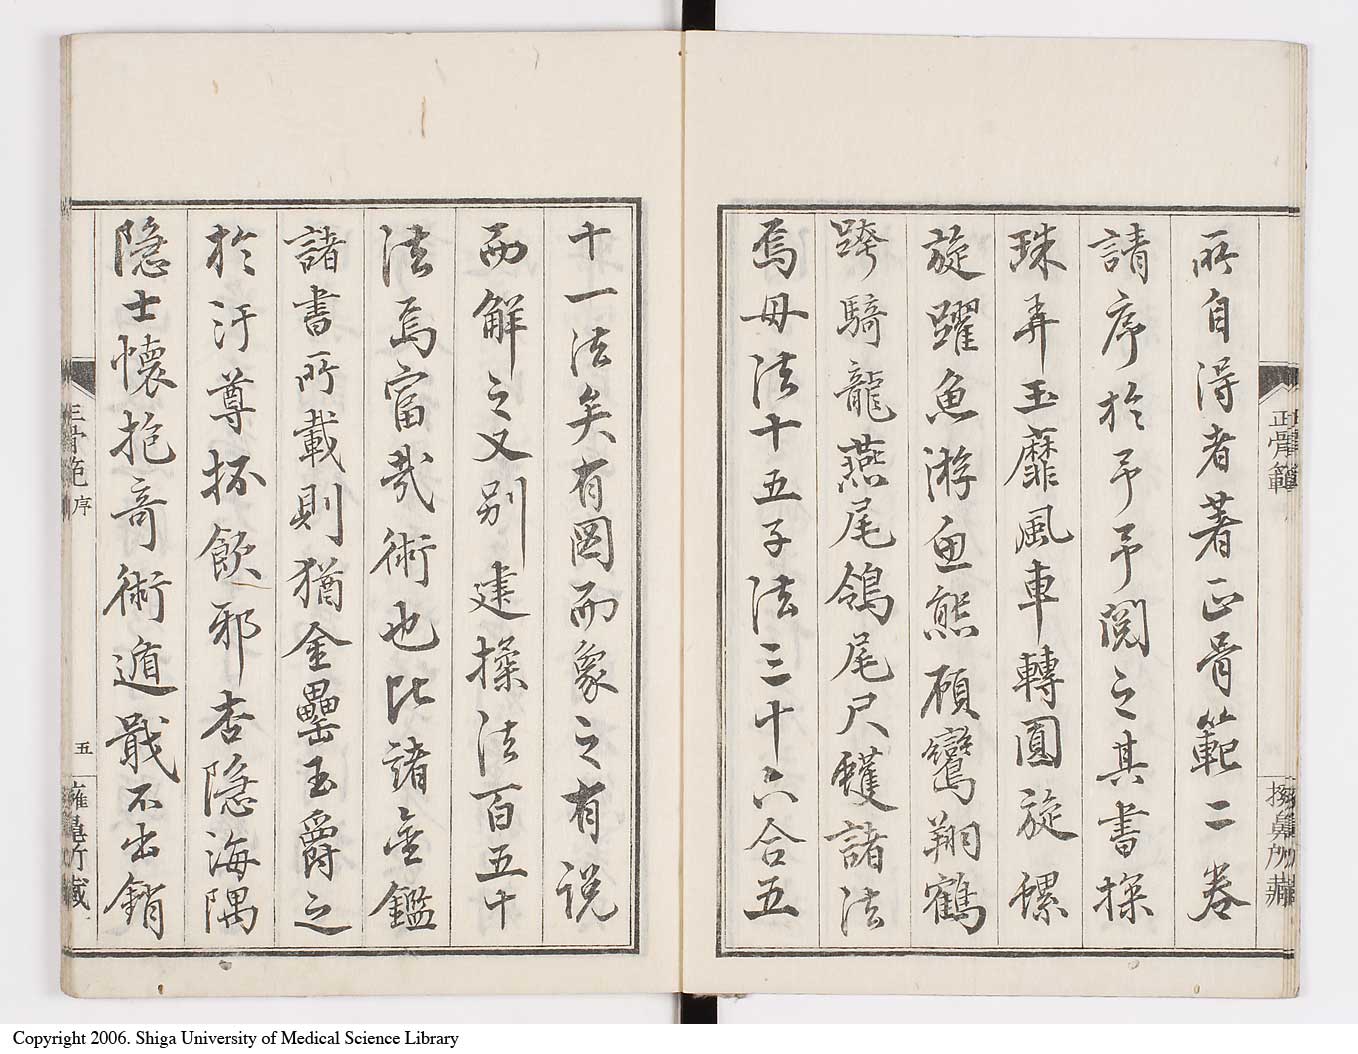 所自得者著正骨範二卷
請序於予予閱之其書探
珠弄玉靡風車轉圓旋螺
旋躍魚游魚熊顧鸞翔鶴
跨騎龍燕尾鴿尾尺蠖諸法
焉母法十五子法三十六合五
十一法矣有圖而象之有說
而解之又別建操法百五十
法焉富哉術也比諸金鑑
諸書所載則猶金罍玉爵之
於汙尊抔飲邪杏隱海隅
隱士懷抱奇術遁戢不出銷
正骨範
正骨範 序
五